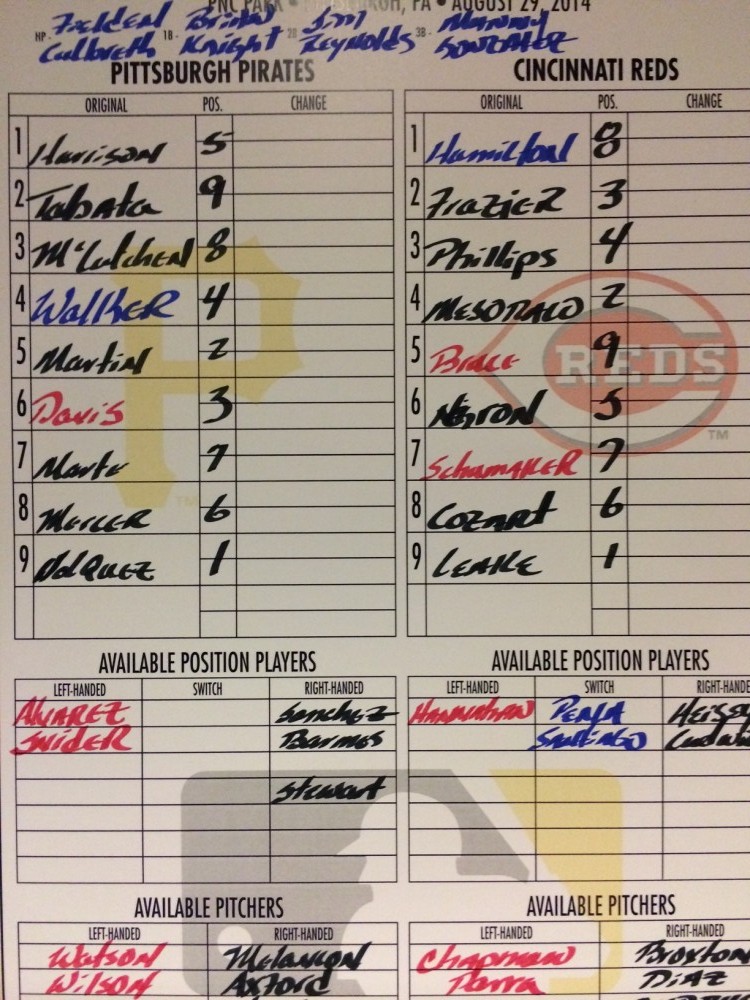 PNC PARK • PITTSBURGH, PA • AUGUST 29, 2014
HP - Fielden Culbreth 1B - Brian Knight 2B - Jim Reynolds 3B - Manny Gonzalez
PITTSBURGH PIRATES
ORIGINAL POS. CHANGE
1 Harrison 5
2 Tabata 9
3 McCutchen 8
4 Walker 4
5 Martin 2
6 Davis 3
7 Marte 7
8 Mercer 6
9 Volquez 1
CINCINNATI REDS
ORIGINAL POS. CHANGE
1 Hamilton 8
2 Frazier 3
3 Phillips 4
4 Mesoraco 2
5 Bruce 9
6 Negron 5
7 Schumaker 7
8 Cozart 6
9 Leake 1
P
TM
REDS
TM
AVAILABLE POSITION PLAYERS
LEFT-HANDED SWITCH RIGHT-HANDED
Alvarez Sanchez
Snider Barmes
Stewart
AVAILABLE POSITION PLAYERS
LEFT-HANDED SWITCH RIGHT-HANDE
Hannahan Pena Heisey
Santiago Ludwi
AVAILABLE PITCHERS
LEFT-HANDED RIGHT-HANDED
Watson Melancon
Wilson Axford
AVAILABLE PITCHERS
LEFT-HANDED RIGHT-HANDED
Chapman Broxton
Parra Diaz